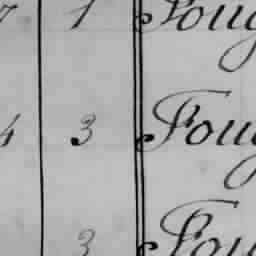 7 1 Foug
4 3 Foug
3 Fou